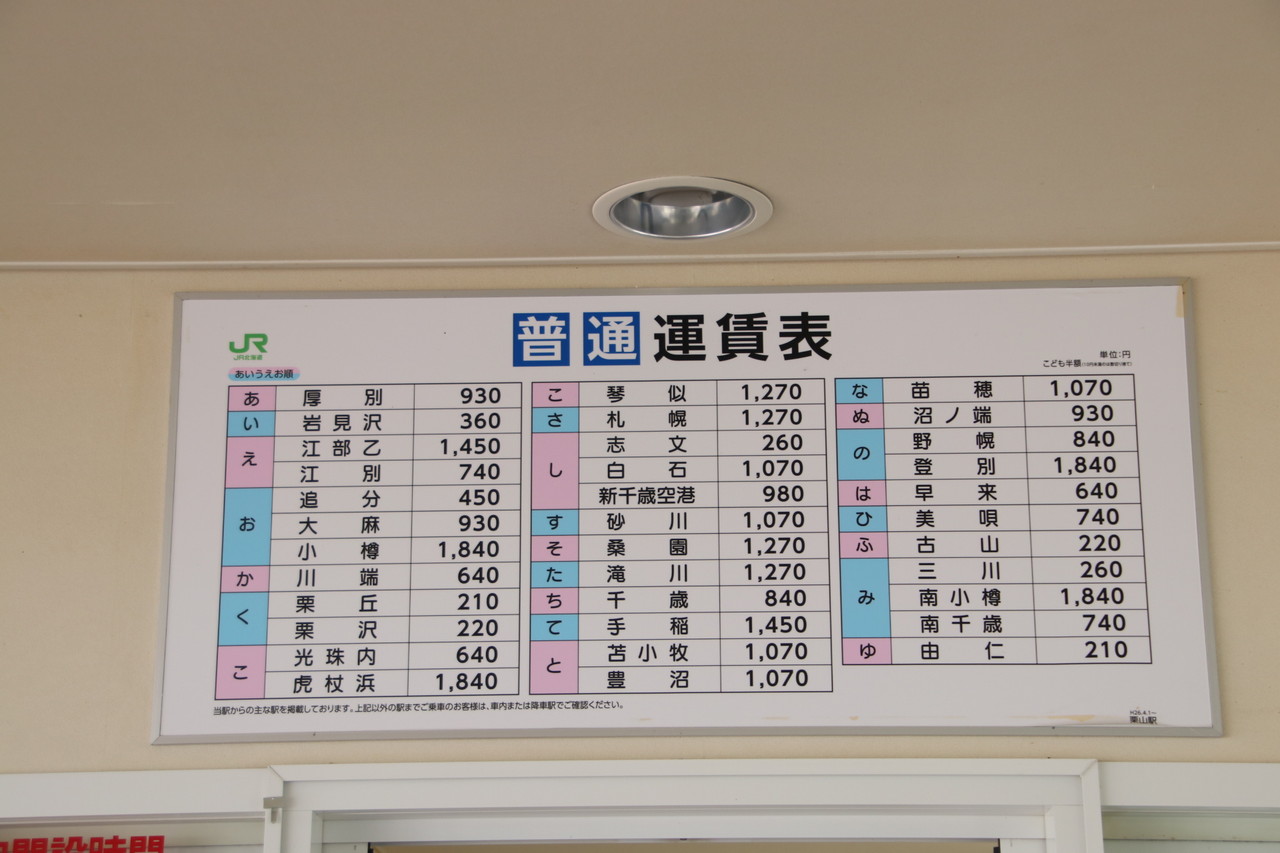 普通運賃表
JR
JR北海道
あいうえお順
単位:円
こども半額
あ 厚別 930
い 岩見沢 360
え 江部乙 1,450
江別 740
お 追分 450
大麻 930
小樽 1,840
か 川端 640
く 栗丘 210
栗沢 220
こ 光珠内 640
虎杖浜 1,840
こ 琴似 1,270
さ 札幌 1,270
し 志文 260
白石 1,070
新千歳空港 980
す 砂川 1,070
そ 桑園 1,270
た 滝川 1,270
ち 千歳 840
て 手稲 1,450
と 苫小牧 1,070
豊沼 1,070
な 苗穂 1,070
ぬ 沼ノ端 930
の 野幌 840
登別 1,840
は 早来 640
ひ 美唄 740
ふ 古山 220
み 三川 260
南小樽 1,840
南千歳 740
ゆ 由仁 210
当駅からの主な駅を掲載しております。上記以外の駅までご乗車のお客様は、車内または降車駅でご確認ください。
H26.4.1〜
栗山駅
開設時間